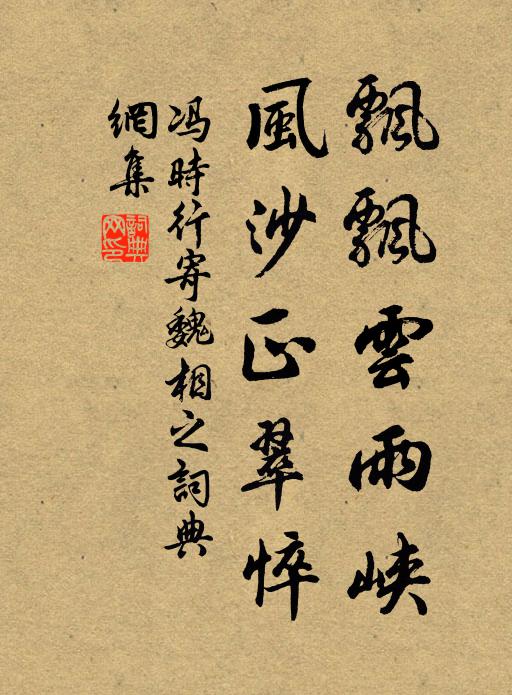 飄飄雲雨峽
風沙正翠悴
馮時行寄魏相之詞典
網集
詞典網印